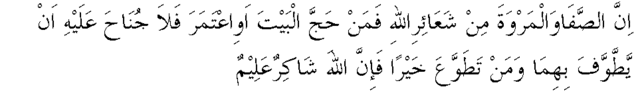 اِنَّ الصَّفَاوَالْمَرْوَةَ مِنْ شَعَائِرِاللهِ فَمَنْ حَجَّ الْبَيْتَ اَوِاعْتَمَرَ فَلاَ جُنَاحَ عَلَيْهِ اَنْ
يَّطَّوَّفَ بِهِمَا وَمَنْ تَطَوَّعَ خَيْرًا فَاِنَّ اللهَ شَاكِرٌعَلِيْمٌ